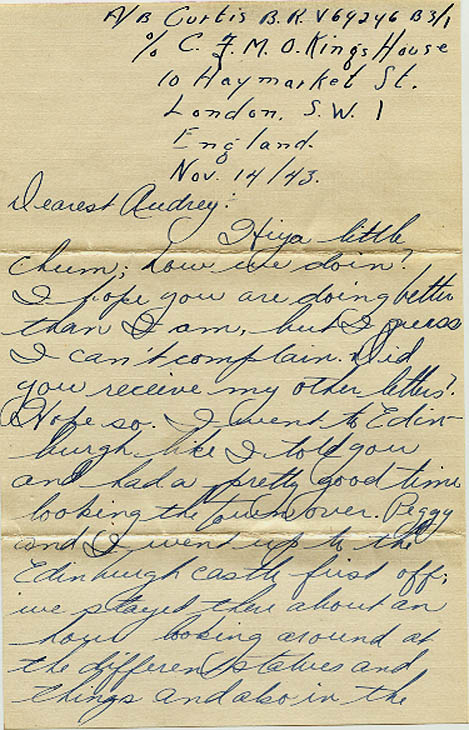 A/B Curtis B.R. V69246 B3/1
% C.F.M.O. Kings House
10 Haymarket St.
London, S.W. 1
England.
Nov. 14/43.
Dearest Audrey:
Hiya little
chum; how're doin?
I hope you are doing better
than I am, but I guess
I can't complain. Did
you receive my other letters?
Hope so. I went to Edin-
burgh like I told you
and had a pretty good time
looking the town over. Peggy
and I went up to the
Edinburgh castle first off;
we stayed there about an
hour looking around at
the different statues and
things and also in the